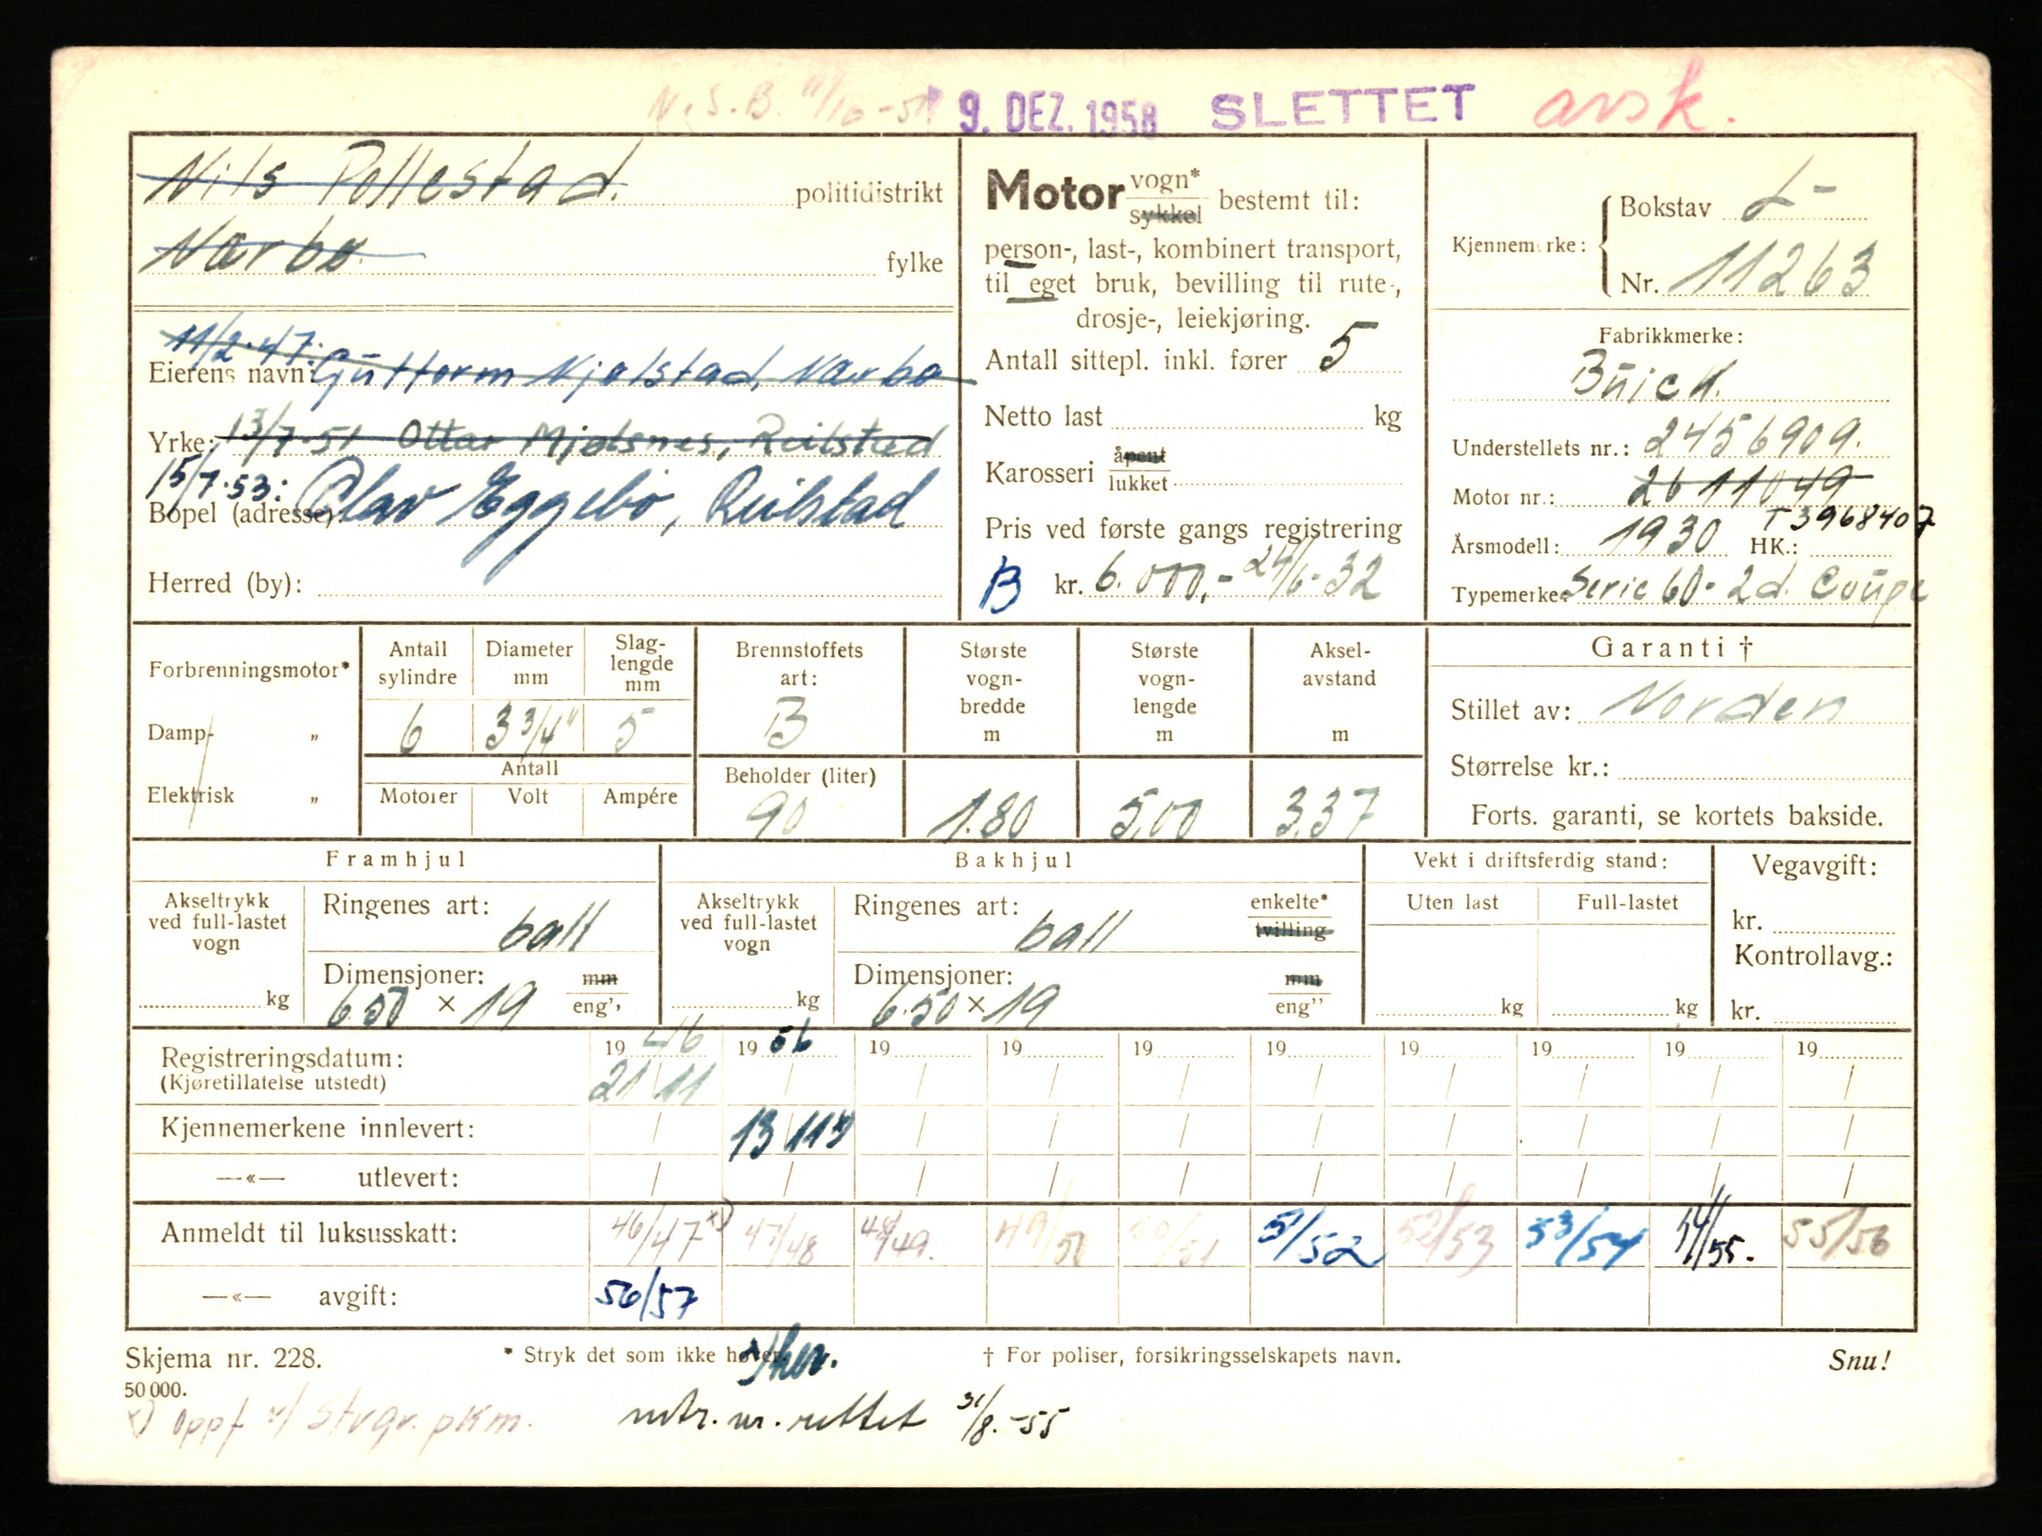 N.S.B. 9. DEZ. 1958 SLETTET avsk.
Nils Pollestad. politidistrikt
Nærbø. fylke
11/2-47: Guttorm Njølstad, Nærbø
Eierens navn:
Yrke: 13/7-51 Ottar Mjølsnes, Reilstad
15/7-53: Olav Eggebø, Reilstad
Bopel (adresse)
Herred (by):
Motor vogn* sykkel bestemt til:
person-, last-, kombinert transport,
til eget bruk, bevilling til rute-,
drosje-, leiekjøring.
Antall sittepl. inkl. fører 5
Netto last kg
Karosseri åpent lukket
Pris ved første gangs registrering
B kr. 6.000,- 24/6-32
Kjennemerke: Bokstav L-
Nr. 11263
Fabrikkmerke:
Buick.
Understellets nr.: 2456909.
Motor nr.: 2611049
T3968407
Årsmodell: 1930 HK.:
Typemerke: Serie 60- 2d. Coupe
Forbrenningsmotor*
Damp- „
Elektrisk „
Antall sylindre
6
Diameter mm
3 3/4"
Slag-lengde mm
5
Antall
Motorer Volt Ampére
Brennstoffets art:
B
Beholder (liter)
90
Største vogn-bredde m
1.80
Største vogn-lengde m
5,00
Aksel-avstand m
3.37
Garanti †
Stillet av: Norden
Størrelse kr.:
Forts. garanti, se kortets bakside.
Framhjul
Akseltrykk ved full-lastet vogn
kg
Ringenes art: ball
Dimensjoner: mm
6.50 × 19 eng"
Bakhjul
Akseltrykk ved full-lastet vogn
kg
Ringenes art: ball enkelte* tvilling
Dimensjoner: mm
6.50 × 19 eng"
Vekt i driftsferdig stand:
Uten last Full-lastet
kg kg
Vegavgift:
kr.
Kontrollavg.:
kr.
Registreringsdatum: 19 46 19 56 19 19 19 19 19 19 19 19
(Kjøretillatelse utstedt) 21/11 / / / / / / / / /
Kjennemerkene innlevert: / 13/11 / / / / / / / /
—«— utlevert: / / / / / / / / / /
Anmeldt til luksusskatt: 46/47 x) 47/48 48/49. 49/50 50/51 51/52 52/53 53/54 54/55. 55/56
—«— avgift: 56/57
Skjema nr. 228. * Stryk det som ikke høver. † For poliser, forsikringsselskapets navn. Snu!
50 000.
x) Oppf v/ Stvgr. pkm. mtr. nr. rettet 31/8.-55